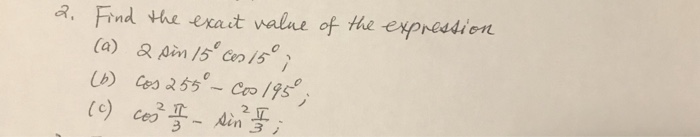 2. Find the exact value of the expression
(a) 2 sin 15° cos 15°;
(b) cos 255° - cos 195°;
(c) cos² π/3 - sin² π/3;